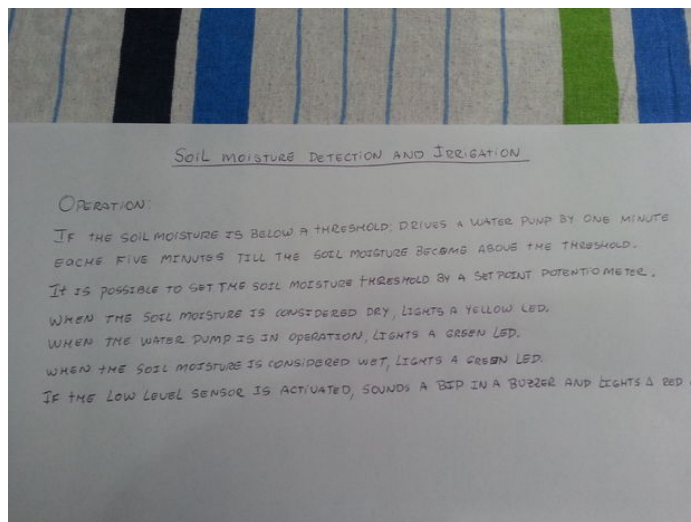 SOIL MOISTURE DETECTION AND IRRIGATION
OPERATION:
IF THE SOIL MOISTURE IS BELOW A THRESHOLD, DRIVES A WATER PUNP BY ONE MINUTE
EACHE FIVE MINUTES TILL THE SOIL MOISTURE BECAME ABOVE THE THRESHOLD.
IT IS POSSIBLE TO SET THE SOIL MOISTURE THRESHOLD BY A SETPOINT POTENTIOMETER.
WHEN THE SOIL MOISTURE IS CONSIDERED DRY, LIGHTS A YELLOW LED.
WHEN THE WATER PUMP IS IN OPERATION, LIGHTS A GREEN LED.
WHEN THE SOIL MOISTURE IS CONSIDERED WET, LIGHTS A GREEN LED.
IF THE LOW LEVEL SENSOR IS ACTIVATED, SOUNDS A BIP IN A BUZZER AND LIGHTS A RED